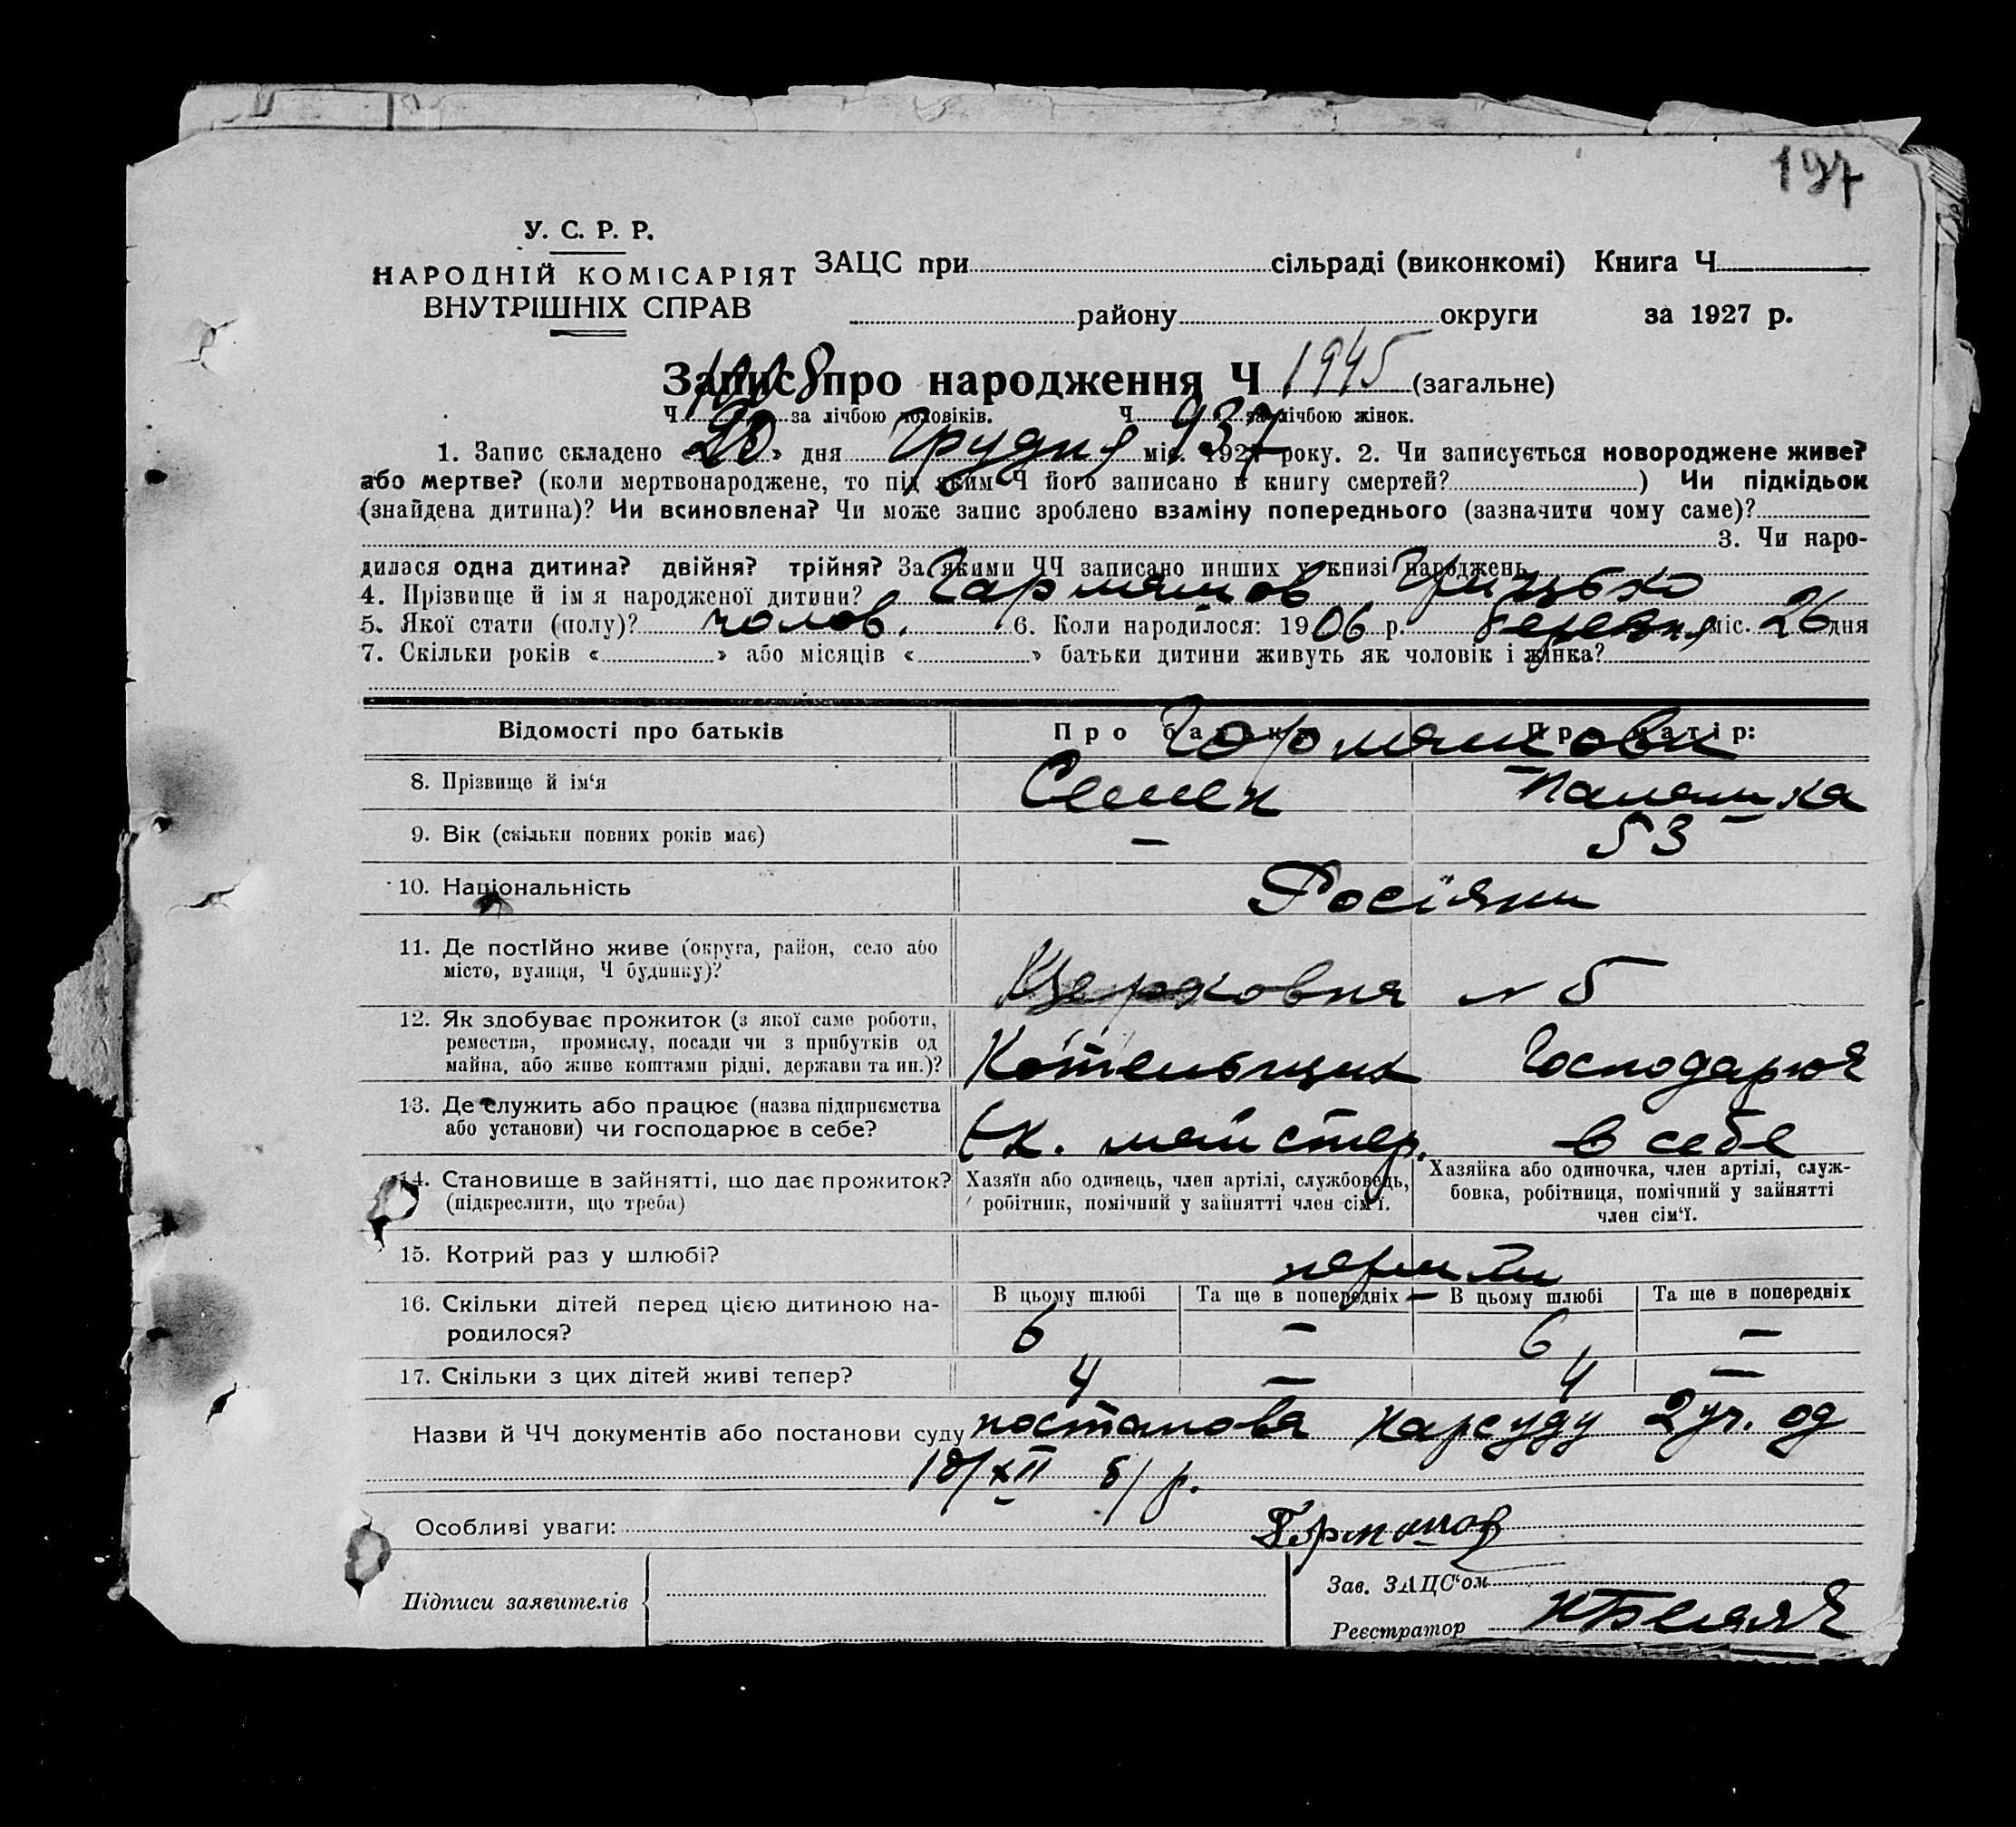 197
У. С. Р. Р.
НАРОДНІЙ КОМІСАРІЯТ
ВНУТРІШНІХ СПРАВ
ЗАЦС при сільраді (виконкомі) Книга Ч.
району округи за 1927 р.
Запис про народження Ч 1945 (загальне)
Ч. 1008 за лічбою чоловіків. Ч. 937 за лічбою жінок.
1. Запис складено «20» дня Грудня міс. 1927 року. 2. Чи записується новороджене живе?
або мертве? (коли мертвонароджене, то під яким Ч його записано в книгу смертей? ) Чи підкідьок
(знайдена дитина)? Чи всиновлена? Чи може запис зроблено взаміну попереднього (зазначити чому саме)?
3. Чи наро-
дилася одна дитина? двійня? трійня? За якими ЧЧ записано инших у книзі народжень
4. Прізвище й ім я народженої дитини? Грицько
5. Якої стати (полу)? чолов. 6. Коли народилося: 1906 р. березня міс. 26 дня
7. Скільки років « » або місяців « » батьки дитини живуть як чоловік і жінка?
Відомості про батьків Про батька Про матір:
8. Прізвище й ім'я Семен
9. Вік (скільки повних років має) — 53
10. Національність Росіяни
11. Де постійно живе (округа, район, село або
місто, вулиця, Ч будинку)? Церковна № 5
12. Як здобуває прожиток (з якої саме роботи,
ремества, промислу, посади чи з прибутків од
майна, або живе коштами рідні, держави та ин.)? Котельщик Господарює
13. Де служить або працює (назва підприємства
або установи) чи господарює в себе? майстер. в себе
14. Становище в зайнятті, що дає прожиток?
(підкреслити, що треба)
Хазяїн або одинець, член артілі, службовець,
робітник, помічний у зайнятті член сім'ї.
Хазяйка або одиночка, член артілі, служ-
бовка, робітниця, помічний у зайнятті
член сім'ї.
15. Котрий раз у шлюбі?
16. Скільки дітей перед цією дитиною на-
родилося?
В цьому шлюбі Та ще в попередніх В цьому шлюбі Та ще в попередніх
6 — 6 —
17. Скільки з цих дітей живі тепер? 4 — 4 —
Назви й ЧЧ документів або постанови суду постанова Нарсуду 2 уч. од
/XII б/р.
Особливі уваги:
Підписи заявителів
Зав. ЗАЦС'ом
Реєстратор